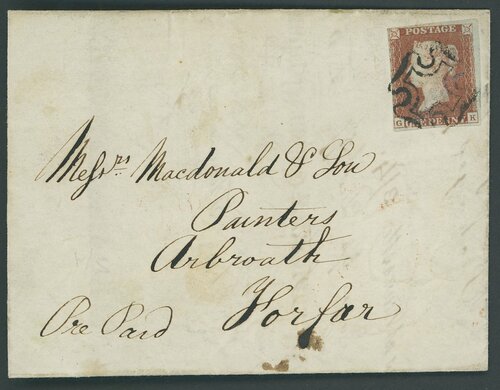 POSTAGE
ONE PENNY
G K
Messrs Macdonald & Son
Painters
Arbroath
Forfar
Pre Paid